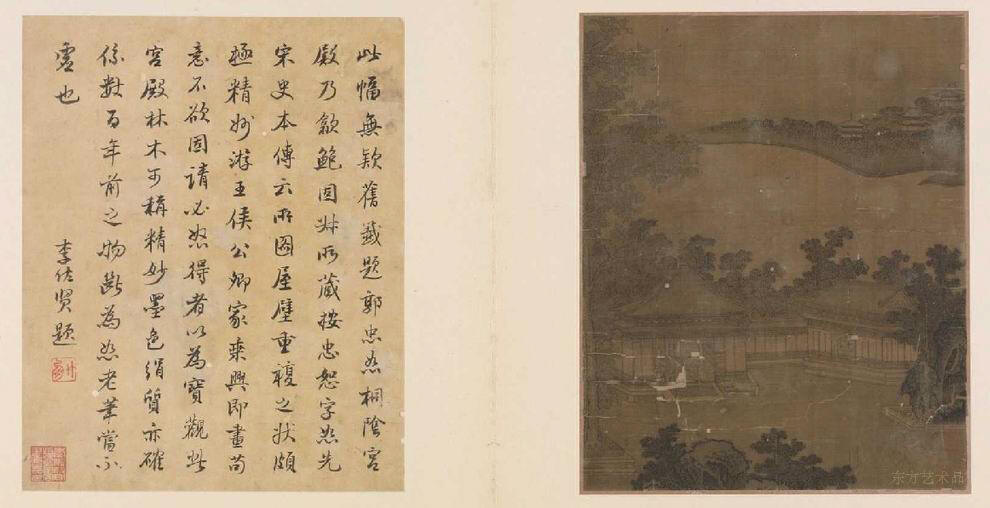 此幅無款舊籤題郭忠恕桐陰宮
殿乃歙鮑固叔所藏按忠恕字恕先
宋史本傳云所圖屋壁重複之狀頗
極精妙游王侯公卿家乘興即畫苟
意不欲固請必怒得者以為寶觀此
宮殿林木可稱精妙墨色絹質亦確
係數百年前之物斷為恕老筆當不
虛也
李佐賢題
东方艺术品